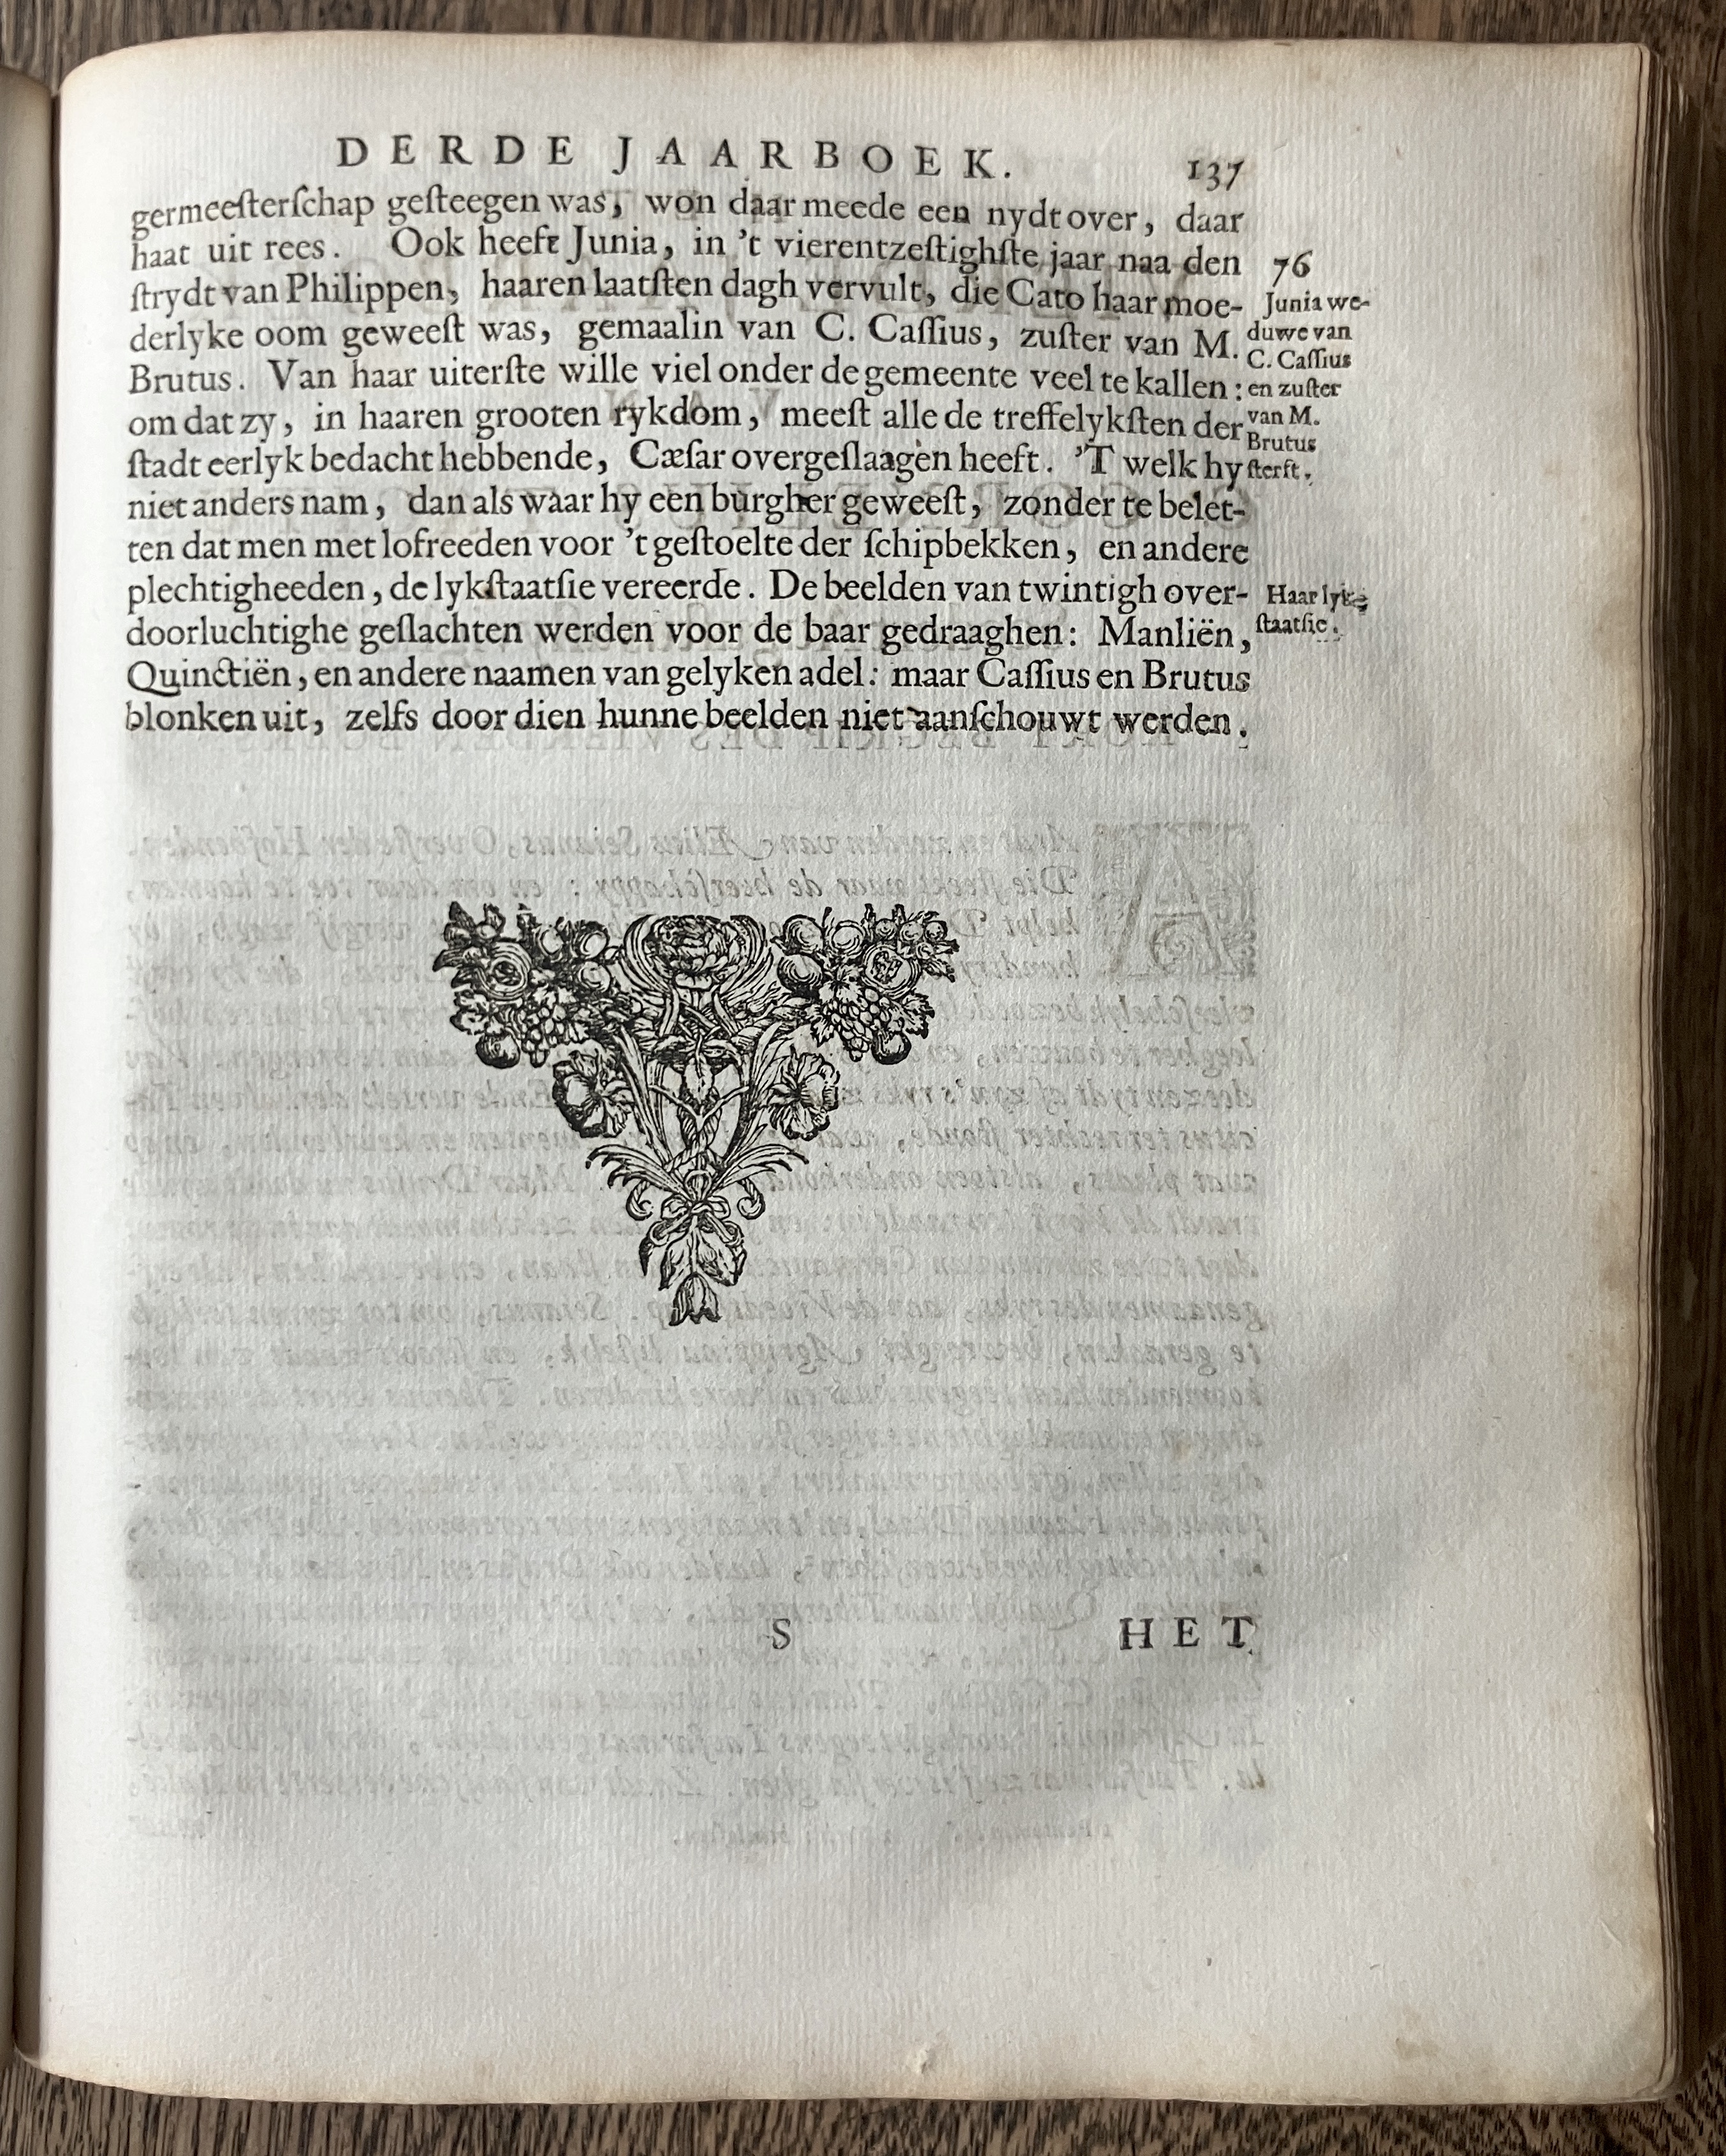 DERDE JAARBOEK. 137
germeeſterſchap geſteegen was, won daar meede een nydt over, daar
haat uit rees. Ook heeft Junia, in 't vierentzeſtighſte jaar naa den
ſtrydt van Philippen, haaren laatſten dagh vervult, die Cato haar moe-
derlyke oom geweeſt was, gemaalin van C. Caſſius, zuſter van M.
Brutus. Van haar uiterſte wille viel onder de gemeente veel te kallen:
om dat zy, in haaren grooten rykdom, meeſt alle de treffelykſten der
ſtadt eerlyk bedacht hebbende, Cæſar overgeſlaagen heeft. 'T welk hy
niet anders nam, dan als waar hy een burgher geweeſt, zonder te belet-
ten dat men met lofreeden voor 't geſtoelte der ſchipbekken, en andere
plechtigheeden, de lykſtaatſie vereerde. De beelden van twintigh over-
doorluchtighe geſlachten werden voor de baar gedraaghen: Manliën,
Quinctiën, en andere naamen van gelyken adel: maar Caſſius en Brutus
blonken uit, zelfs door dien hunne beelden niet aanſchouwt werden.
76
Junia we-
duwe van
C. Caſſius
en zuſter
van M.
Brutus
ſterft.
Haar lyk-
ſtaatſie.
S HET